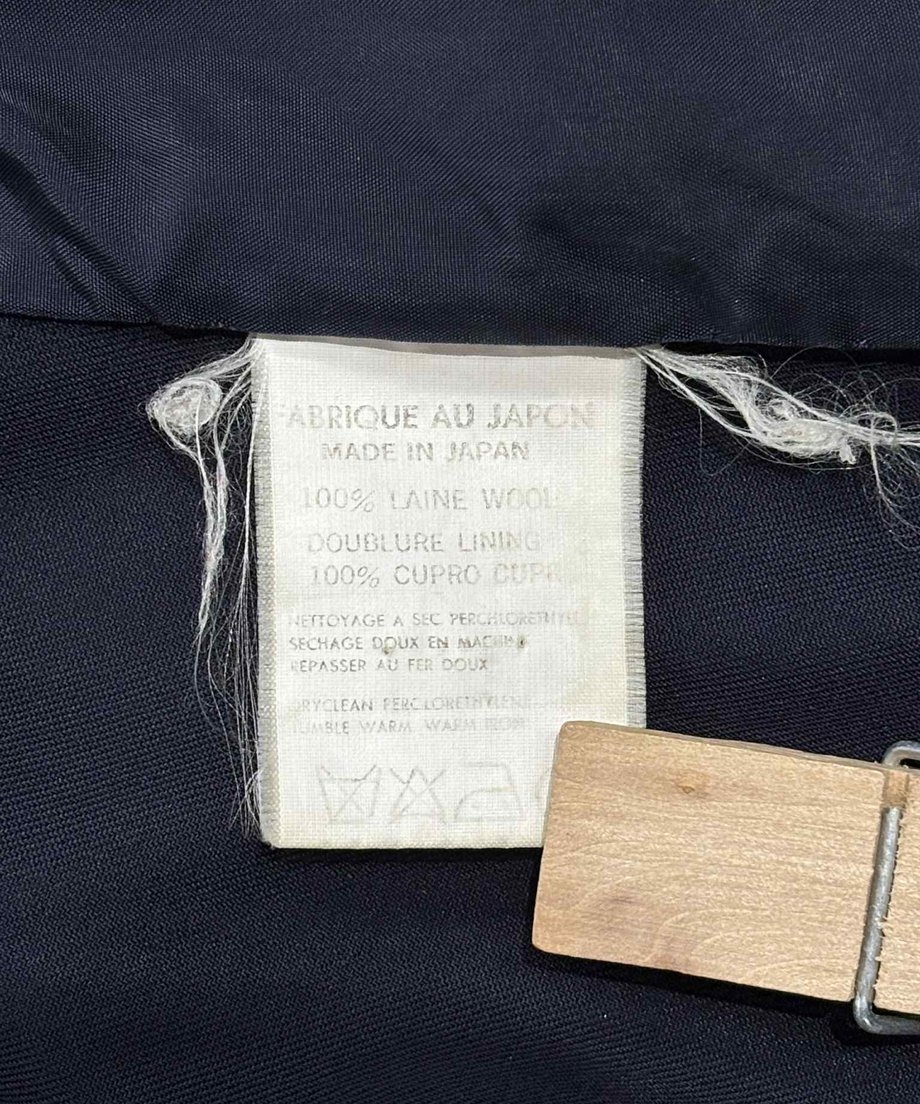 FABRIQUE AU JAPON
MADE IN JAPAN
100% LAINE WOOL
DOUBLURE LINING
100% CUPRO
NETTOYAGE A SEC
SECHAGE DOUX EN MACHINE
REPASSER AU FER DOUX
DRYCLEAN
TUMBLE WARM WARM IRON